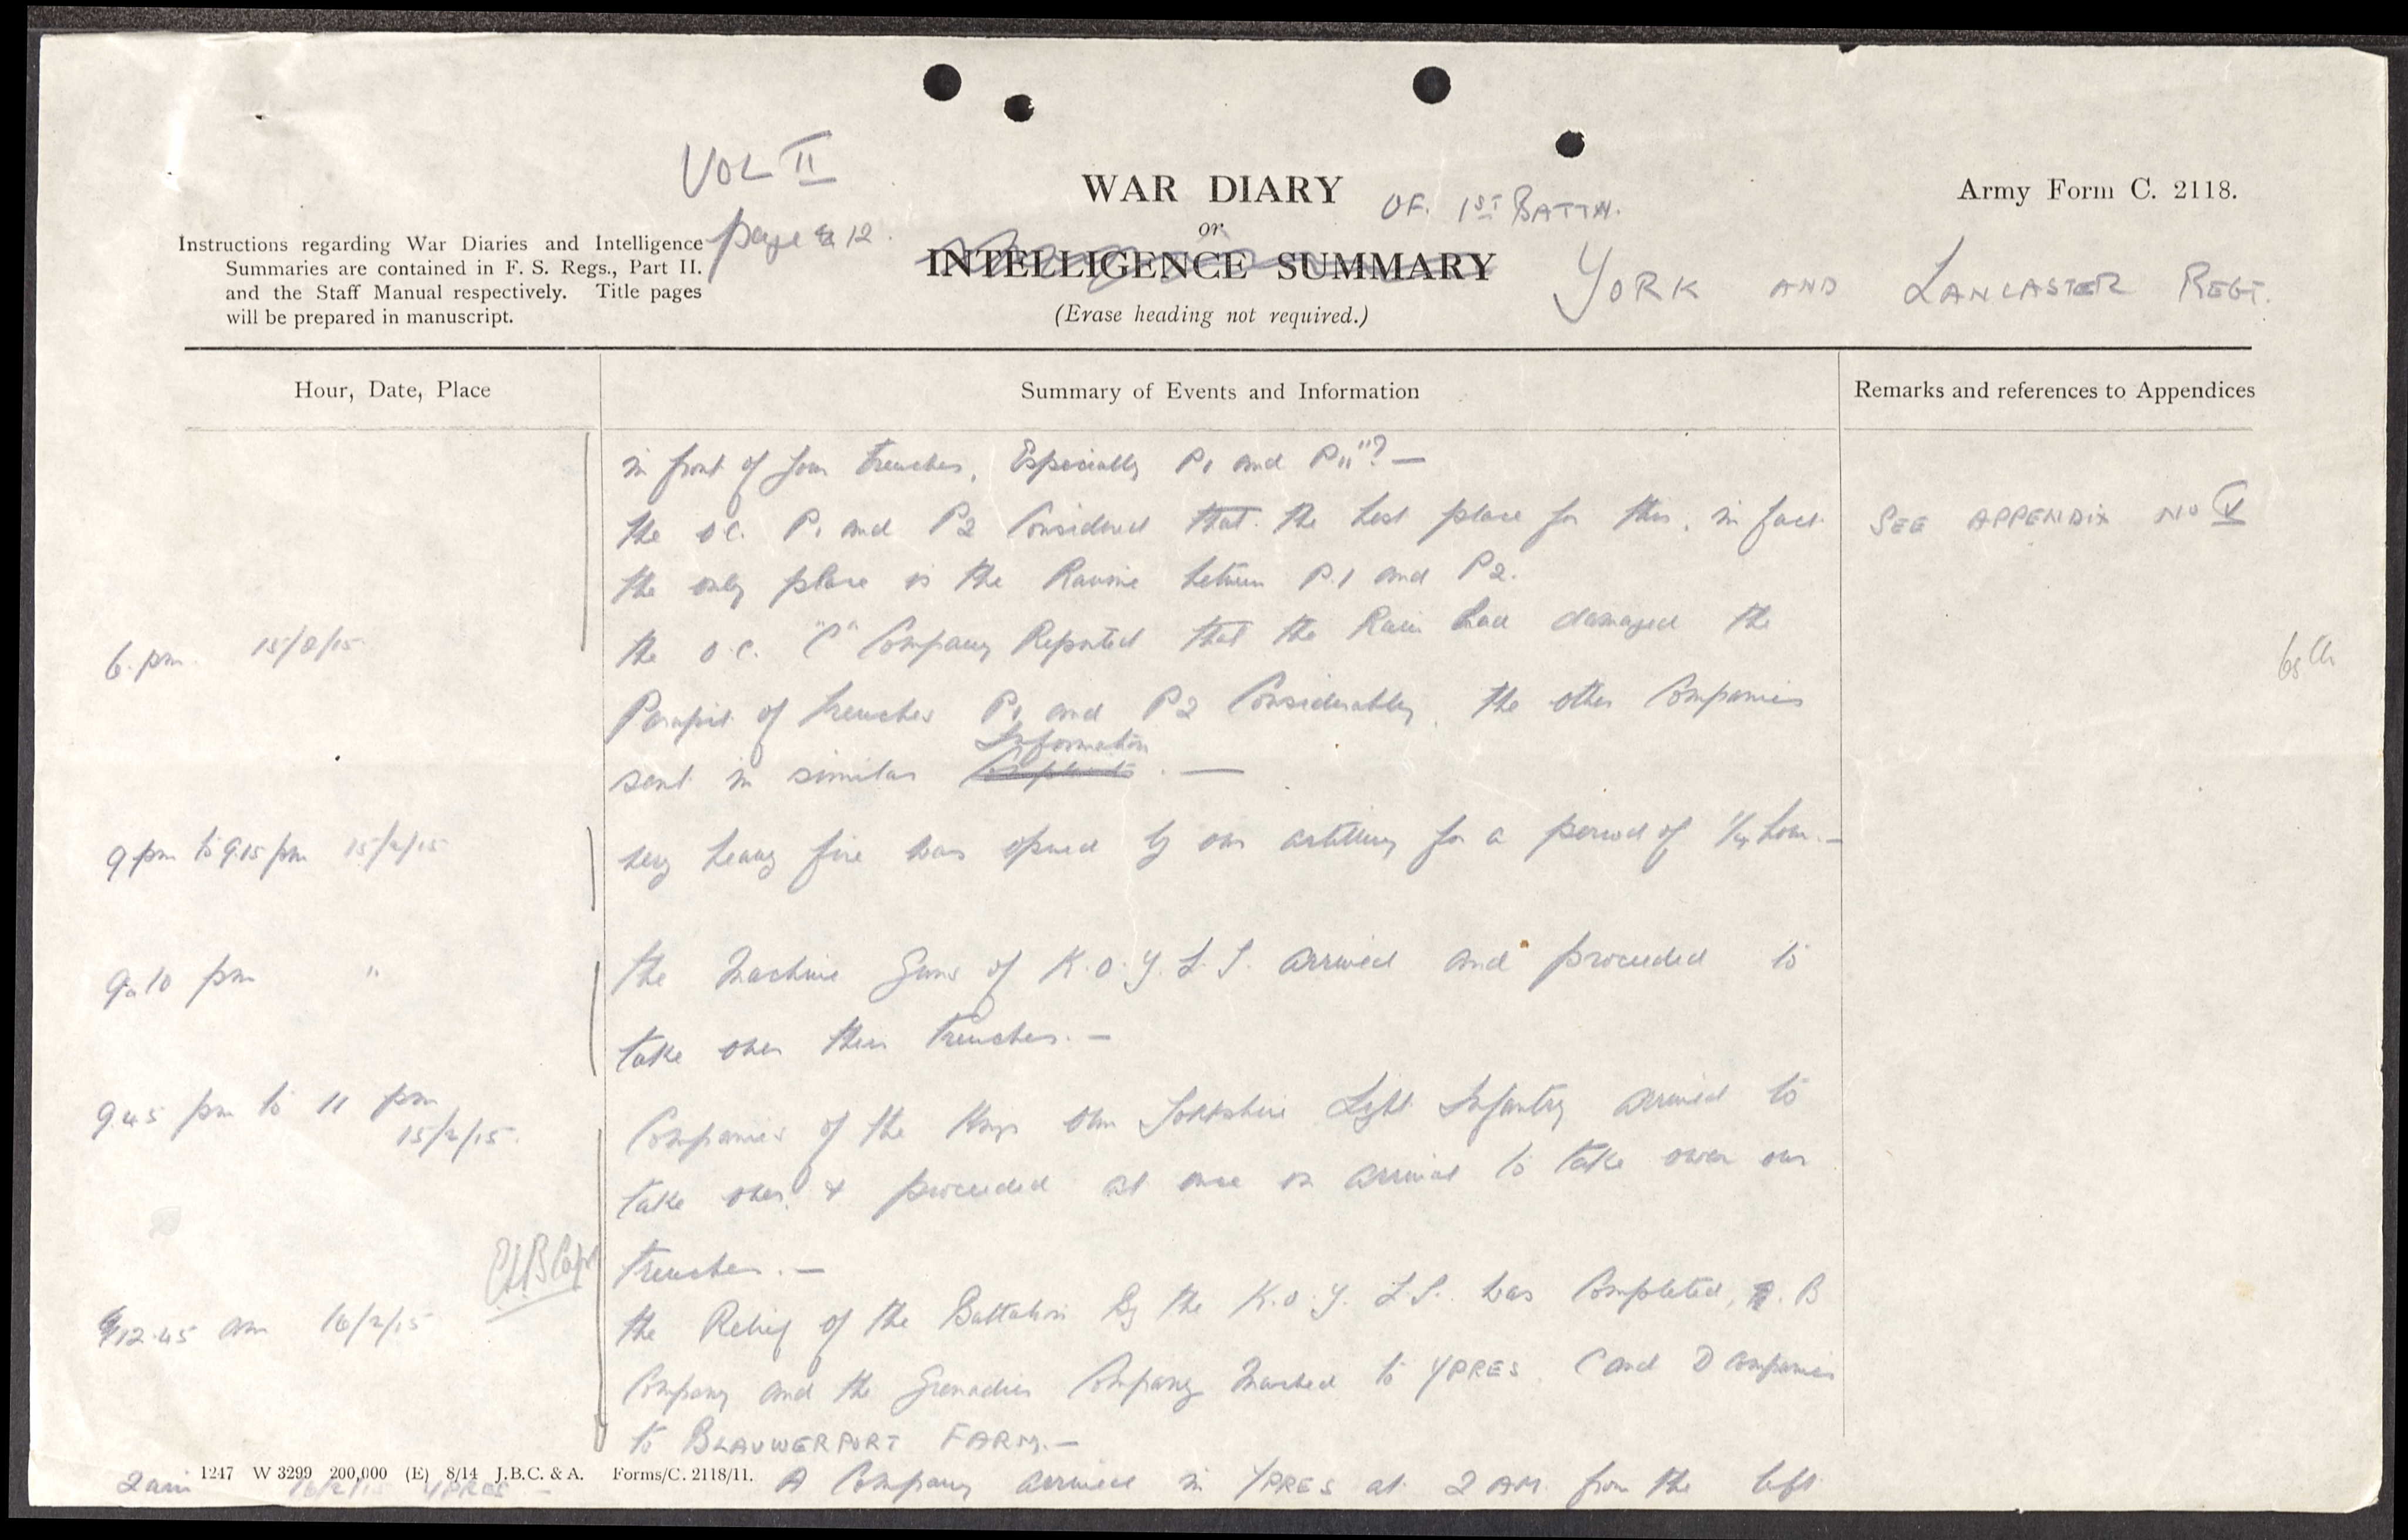 VOL II
page 12.
WAR DIARY
or
INTELLIGENCE SUMMARY
(Erase heading not required.)
OF. 1ST BATTN.
YORK AND LANCASTER REGT.
Army Form C. 2118.
Instructions regarding War Diaries and Intelligence
Summaries are contained in F. S. Regs., Part II.
and the Staff Manual respectively. Title pages
will be prepared in manuscript.
Hour, Date, Place
Summary of Events and Information
Remarks and references to Appendices
in front of your trenches, Especially P1 and P11"? —
the O.C. P1 and P2 Considered that the best place for this, in fact
SEE APPENDIX NO V
the only place is the Ravine between P.1 and P2.
6. pm. 15/2/15
the O.C. "C" Company Reported that the Rain had damaged the
Parapit of trenches P1 and P2 Considerably. the other Companies
sent in similar Information . —
9 pm to 9.15 pm 15/2/15
very heavy fire was opened by our artillery for a period of 1/4 hour. —
9.10 pm "
the Machine Guns of K.O.Y.L.I. arrived and proceeded to
take over their trenches. —
9.45 pm to 11 pm
15/2/15.
Companies of the Kings Own Yorkshire Light Infantry arrived to
take over & proceeded at once on arrival to take over our
trenches. —
12.45 am 16/2/15
the Relief of the Battalion by the K.O.Y.L.I. was Completed, B
Company and the Grenadier Company Marched to YPRES. C and D Companies
to BLAUWERPORT FARM. —
1247 W 3299 200,000 (E) 8/14 J.B.C. & A. Forms/C. 2118/11.
2 am 16/2/15 YPRES —
A Company arrived in YPRES at 2 AM. from the left